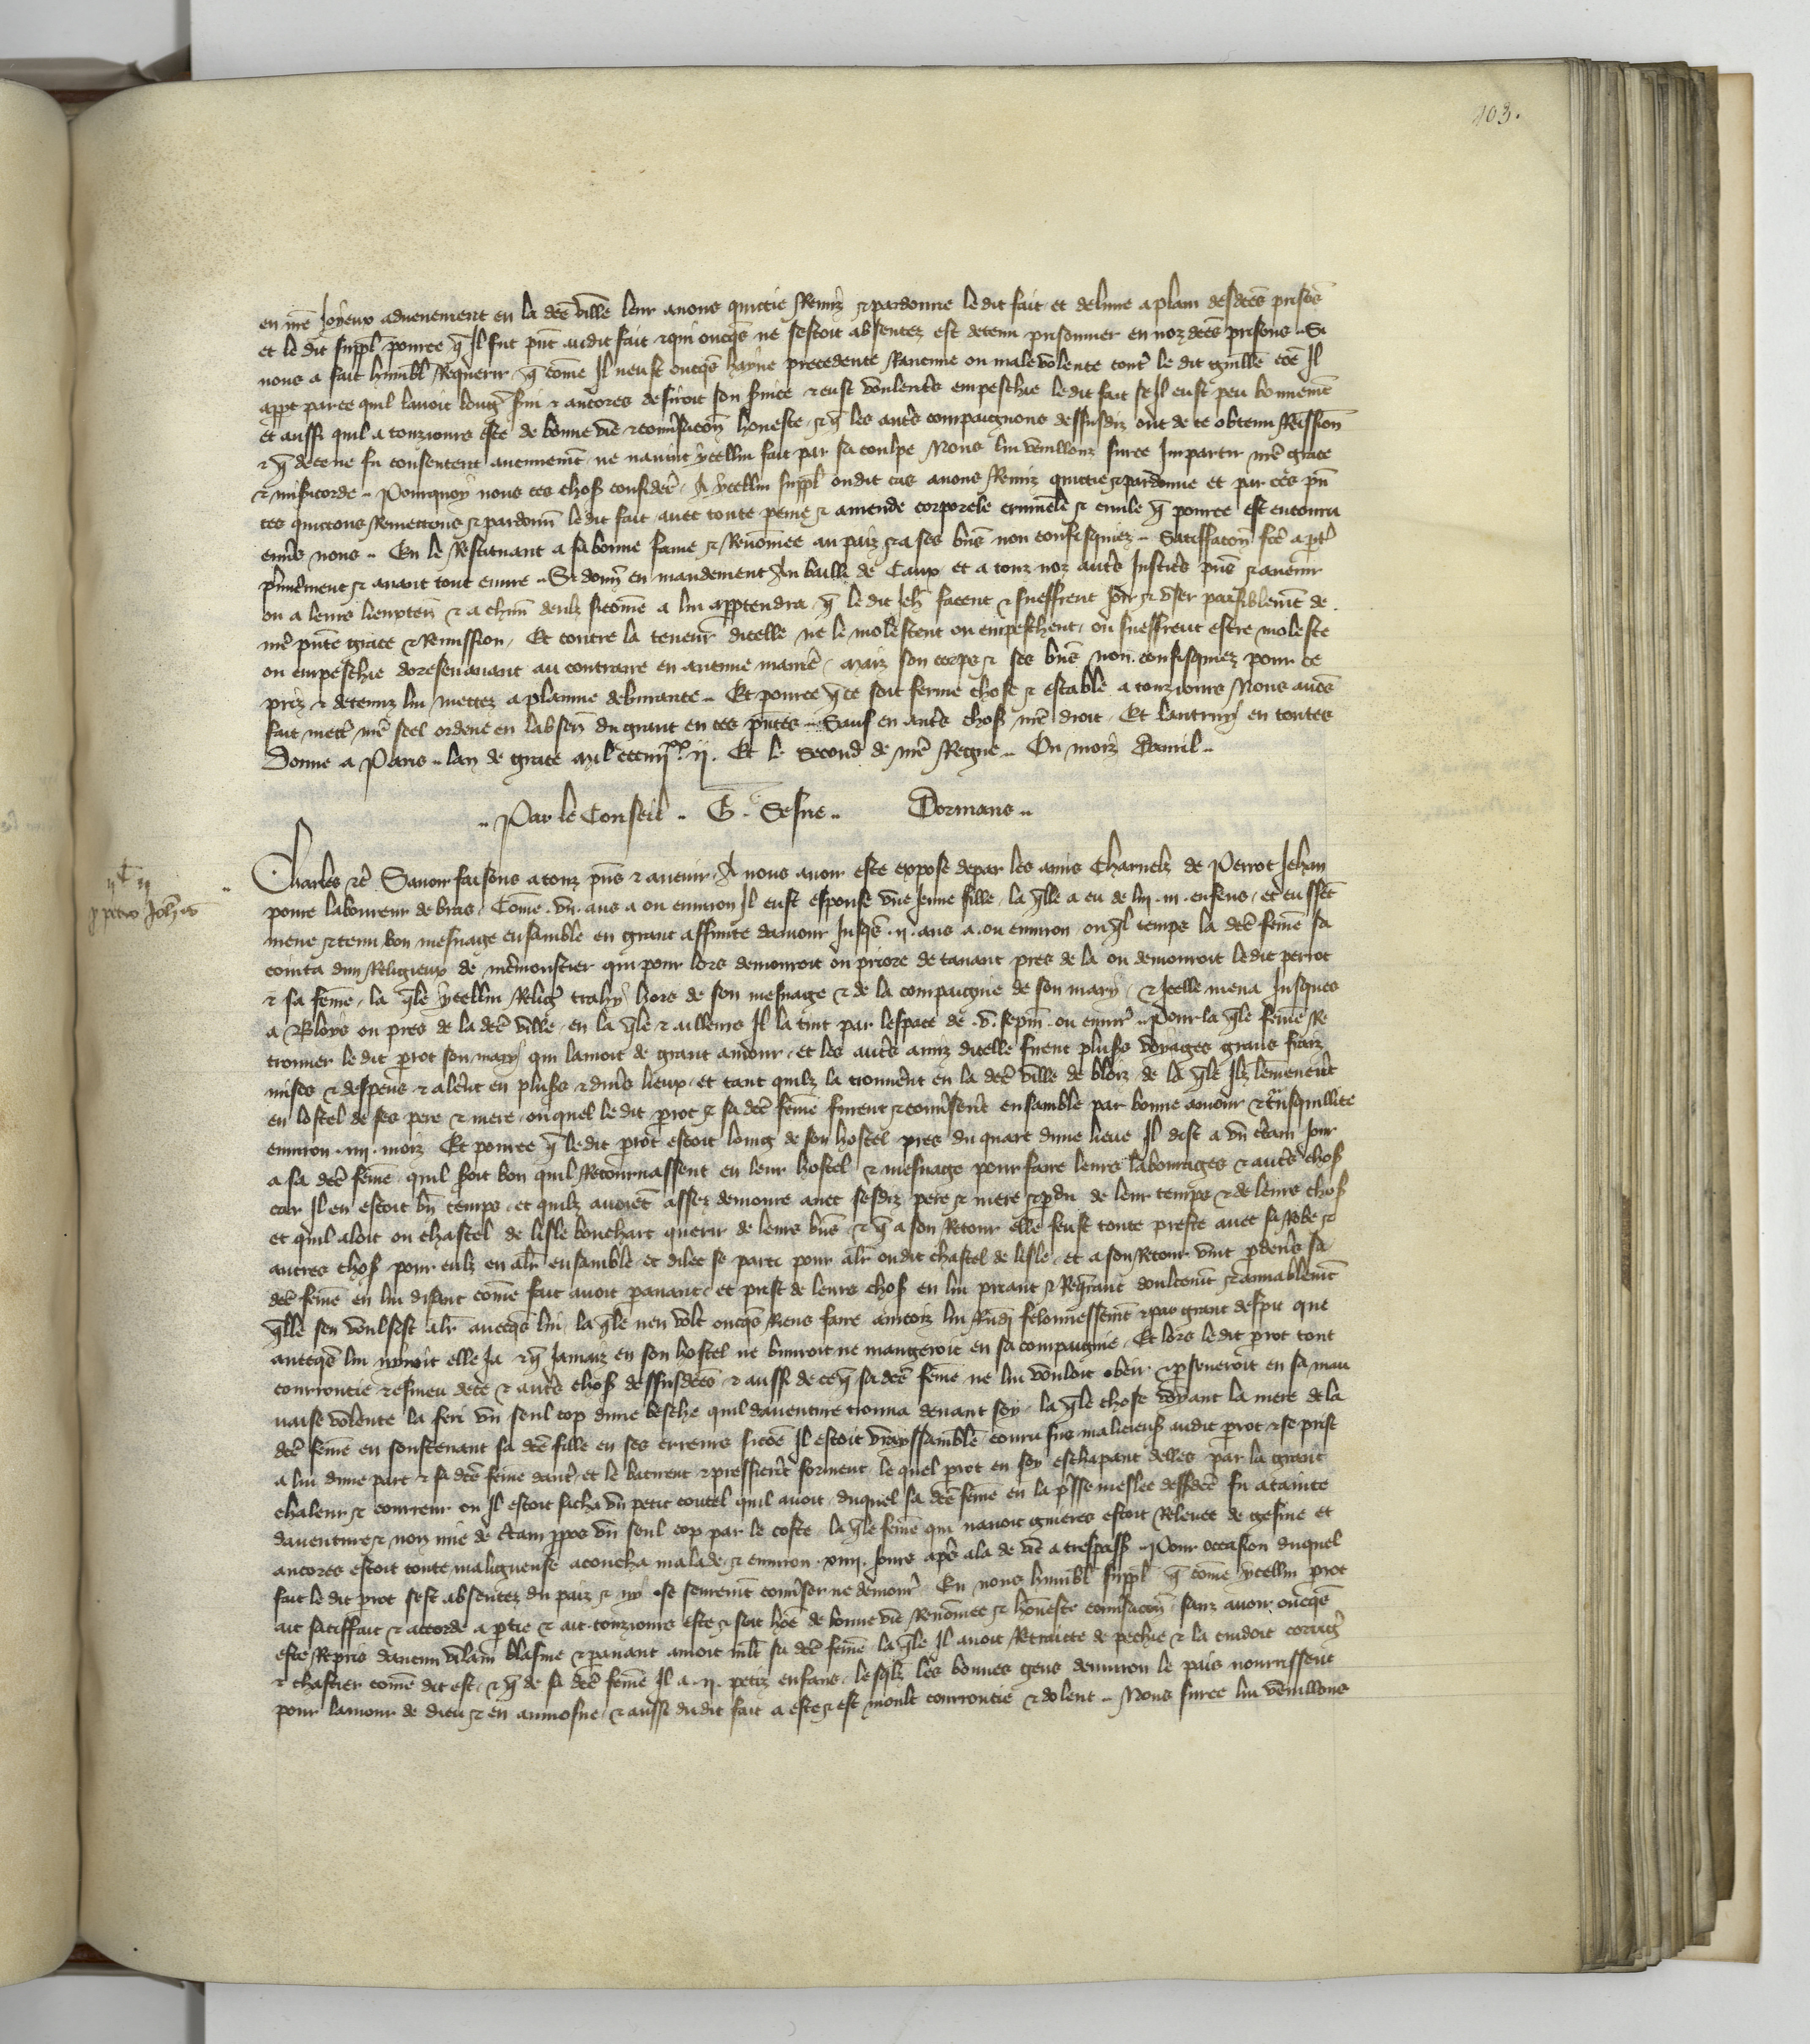 103.
en nr̃e Joyeux advenement en la dc̃e ville leur avons quictie Remis et pardonne le dit fait et delivre a plain desdc̃es prisõs
et le dit suppl̃ pource q̃ Il fut pñt audit fait et qui oncq̃s ne sestoit absentez est detenu prisonnier en noz dc̃es prisons .. Si
nous a fait humbl̃ Requerir q̃ cõme Il neust oncq̃s hayne precedente Rancune ou malevolente contr̃ le dit guillẽ cõe Il
appt parce quil lavoit long̃ suy et ancores desiroit son svice et eust voulentrs empeschie le dit fait se Il eust peu bonnemẽt
et aussi quil a touzjours este de bonne vie et convsacõn honeste et q̃ les autrs compaignons dessusdiz ont de ce obtenu Remission
et q̃ de ce ne fu consentent aucunemẽt ne navint ycellui fait par sa coulpe Nous lui vueillons surce Impartir nr̃e grace
et misicorde .. Pourquoy nous ces chos̃ considerẽ A ycellui suppl̃ ou dit cas avons Remis quictie et pardonne et par ces pñ
tes quictons Remettons et pardonñ le dit fait avec toute peine et amende corporele criminele et civile q̃ pource est encouru
envrs nous .. En le Restituant a sa bonne fame et Renõmee au paiz et a ses bñs non confisquiez .. Satisffacõn fc̃e a pt̃
pr̃mierement et avant tout euvre .. Si donñ en mandement Au bailli de Caux et a touz noz autrs Justicrs pñs et avenir
ou a leurs lieuxteñ et a chũn deulx sicõme a lui apptendra q̃ le dit Jeh̃ facent et sueffrent joir et user paisiblemẽt de
nr̃e pñte grace et Remission Et contre la teneur dicelle ne le molestent ou empeschent ou sueffrent estre moleste
ou empeschie doresenavant au contraire en aucune manie͂ Maiz son corps et ses bñs non confisquiez pour ce
priz et detenuz lui mettez a plainne delivrance .. Et pource q̃ ce soit ferme chose et estable a touzjours Nous avõs
fait mettr̃ nr̃e seel ordene en labseñ du grant en ces pñtes .. Sauf en autrs chos̃ nr̃e droit Et lautruy en toutes
Donne a Paris .. lan de grace mil ccc iiijxx. ij. Et le Second de nr̃e Regne .. Ou mois davril ..
.. Par le Conseil .. G. Sesne .. Dormans ..
Charles etc̃ Savoir faisons a touz pñs et avenir A nous avoir este expose depar les amis Charnelz de Perrot Jehan
povre laboureur de bras Cõme .vij. ans a ou environ Il eust espouse une jeune fille la q̃lle a eu de lui .iij. enfens et eussẽt
mene et tenu bon mesnage ensamble en grant affinite damour jusq̃s .ij. ans a ou environ ou q̃l temps la dc̃e fem̃e sa
cointa dun Religieux de mermoustier qui pour lors demouroit ou priore de tavant pres de la ou demouroit ledit perrot
et sa fem̃e la q̃le ycellui Religx trahy hors de son mesnage et de la compaignie de son mary et Icelle mena Jusques
a Bloys ou pres de la dc̃e ville en la q̃le et ailleurs Il la tint par lespace de .v. sepm̃ ou envir̃ .. Pour la q̃le fem̃e Re
trouver le dit p̱rot son mary qui lamoit de grant amour et les autrs amiz dicelle firent plus̃s voyages grans fraiz
mises et despens̃ et alerẽt en plus̃s et divrs lieux et tant quilz la trouverẽt en la dc̃e ville de bloiz de la q̃le Ilz lemenerẽt
en lostel de ses pere et mere ou quel le dit p̱rot et sa dc̃e fem̃e furent et convserẽt ensamble par bonne amour et tr̃nsquillite
environ .iiij. mois Et pource q̃ le dit p̱rot estoit loing de son hostel pres du quart dune lieue Il dist a un ctain jour
a sa dc̃e fem̃e quil soit bon quil Retournassent en leur hostel et mesnage pour faire leurs labourages et autrs chos̃
car Il en estoit bñ temps et quilz avoiẽt assez demoure avec sesdiz pere et mere et p̱du de leur temps et de leurs chos̃
et quil aloit ou chastel de lisle bouchart querir de leurs bñs et q̃ a son Retour elle feust toute preste avec sa Robe et
autres chos̃ pour eulx en aler̃ ensamble et dilec se parti pour aler̃ ou dit chastel de lisle et a son Retour vint p̱devrs sa
dc̃e fem̃e en lui disant cõme fait avoit paravant et prist de leurs chos̃ en lui priant et Req̃rant doulcemẽt et amiablemẽt
q̃lle sen voulsist aler̃ avecq̃s lui la q̃le nen volt oncq̃s Riens faire aincoiz lui Rñdi felonnessemẽt et par grant despit que
avecq̃s lui nyroit elle Ja et q̃ Jamaiz en son hostel ne buvroit ne mangeroit en sa compaignie Et lors le dit p̱rot tout
courroucie et esmeu de ce et autrs chos̃ dessusdc̃es et aussi de ce q̃ sa dc̃e fem̃e ne lui vouloit obeir et p̱severoit en sa mau
vaise volente la feri un seul cop dune besche quil daventure trouva devant soy la q̃le chose voyant la mere de la
dc̃e fem̃e en soustenant sa dc̃e fille en ses erreurs sicõe Il estoit vraysamblẽ couru sus malicieus̃ audit p̱rot et se prist
a lui dune part et sa dc̃e fem̃e dautr̃ et le batirent et presserẽt forment le quel p̱rot en soy eschapant delles par la grant
chaleur et courreur ou Il estoit sacha un petit coutel quil avoit duquel sa dc̃e fem̃e en la p̃sse meslee dessdc̃e fu atainte
daventure et non mie de ctain p̱pos un seul cop par le coste la q̃le fem̃e qui navoit guieres estoit Relevee de gesine et
ancores estoit toute maligneuse acoucha malade et environ .xiiij. jours aprs ala de vie a trespass̃ .. Pour occasion duquel
fait le dit p̱rot sest absentez du paiz et ny ose seuremẽt convser ne demour̃ En nous humbl̃ suppl̃ q̃ cõme ycellui p̱rot
ait satisffait et accorde a p̱tie et ait touzjours este et soit hõe de bonne vie Renõmee et honeste convsacõn sanz avoir oncq̃s
este Repris daucun vilain blasme et paravant amoit mlt̃ sa dc̃e fem̃e la q̃le Il avoit Retraitte de pechie et la cuidoit corrig̃
et chastier cõme dit est et q̃ de sa dc̃e fem̃e Il a .ij. petiz enfans lesq̃lz les bonnes gens denviron le pais nourrissent
pour lamour de dieu et en aumosne et aussi dudit fait a este et est moult courroucie et dolent .. Nous surce lui vueillons